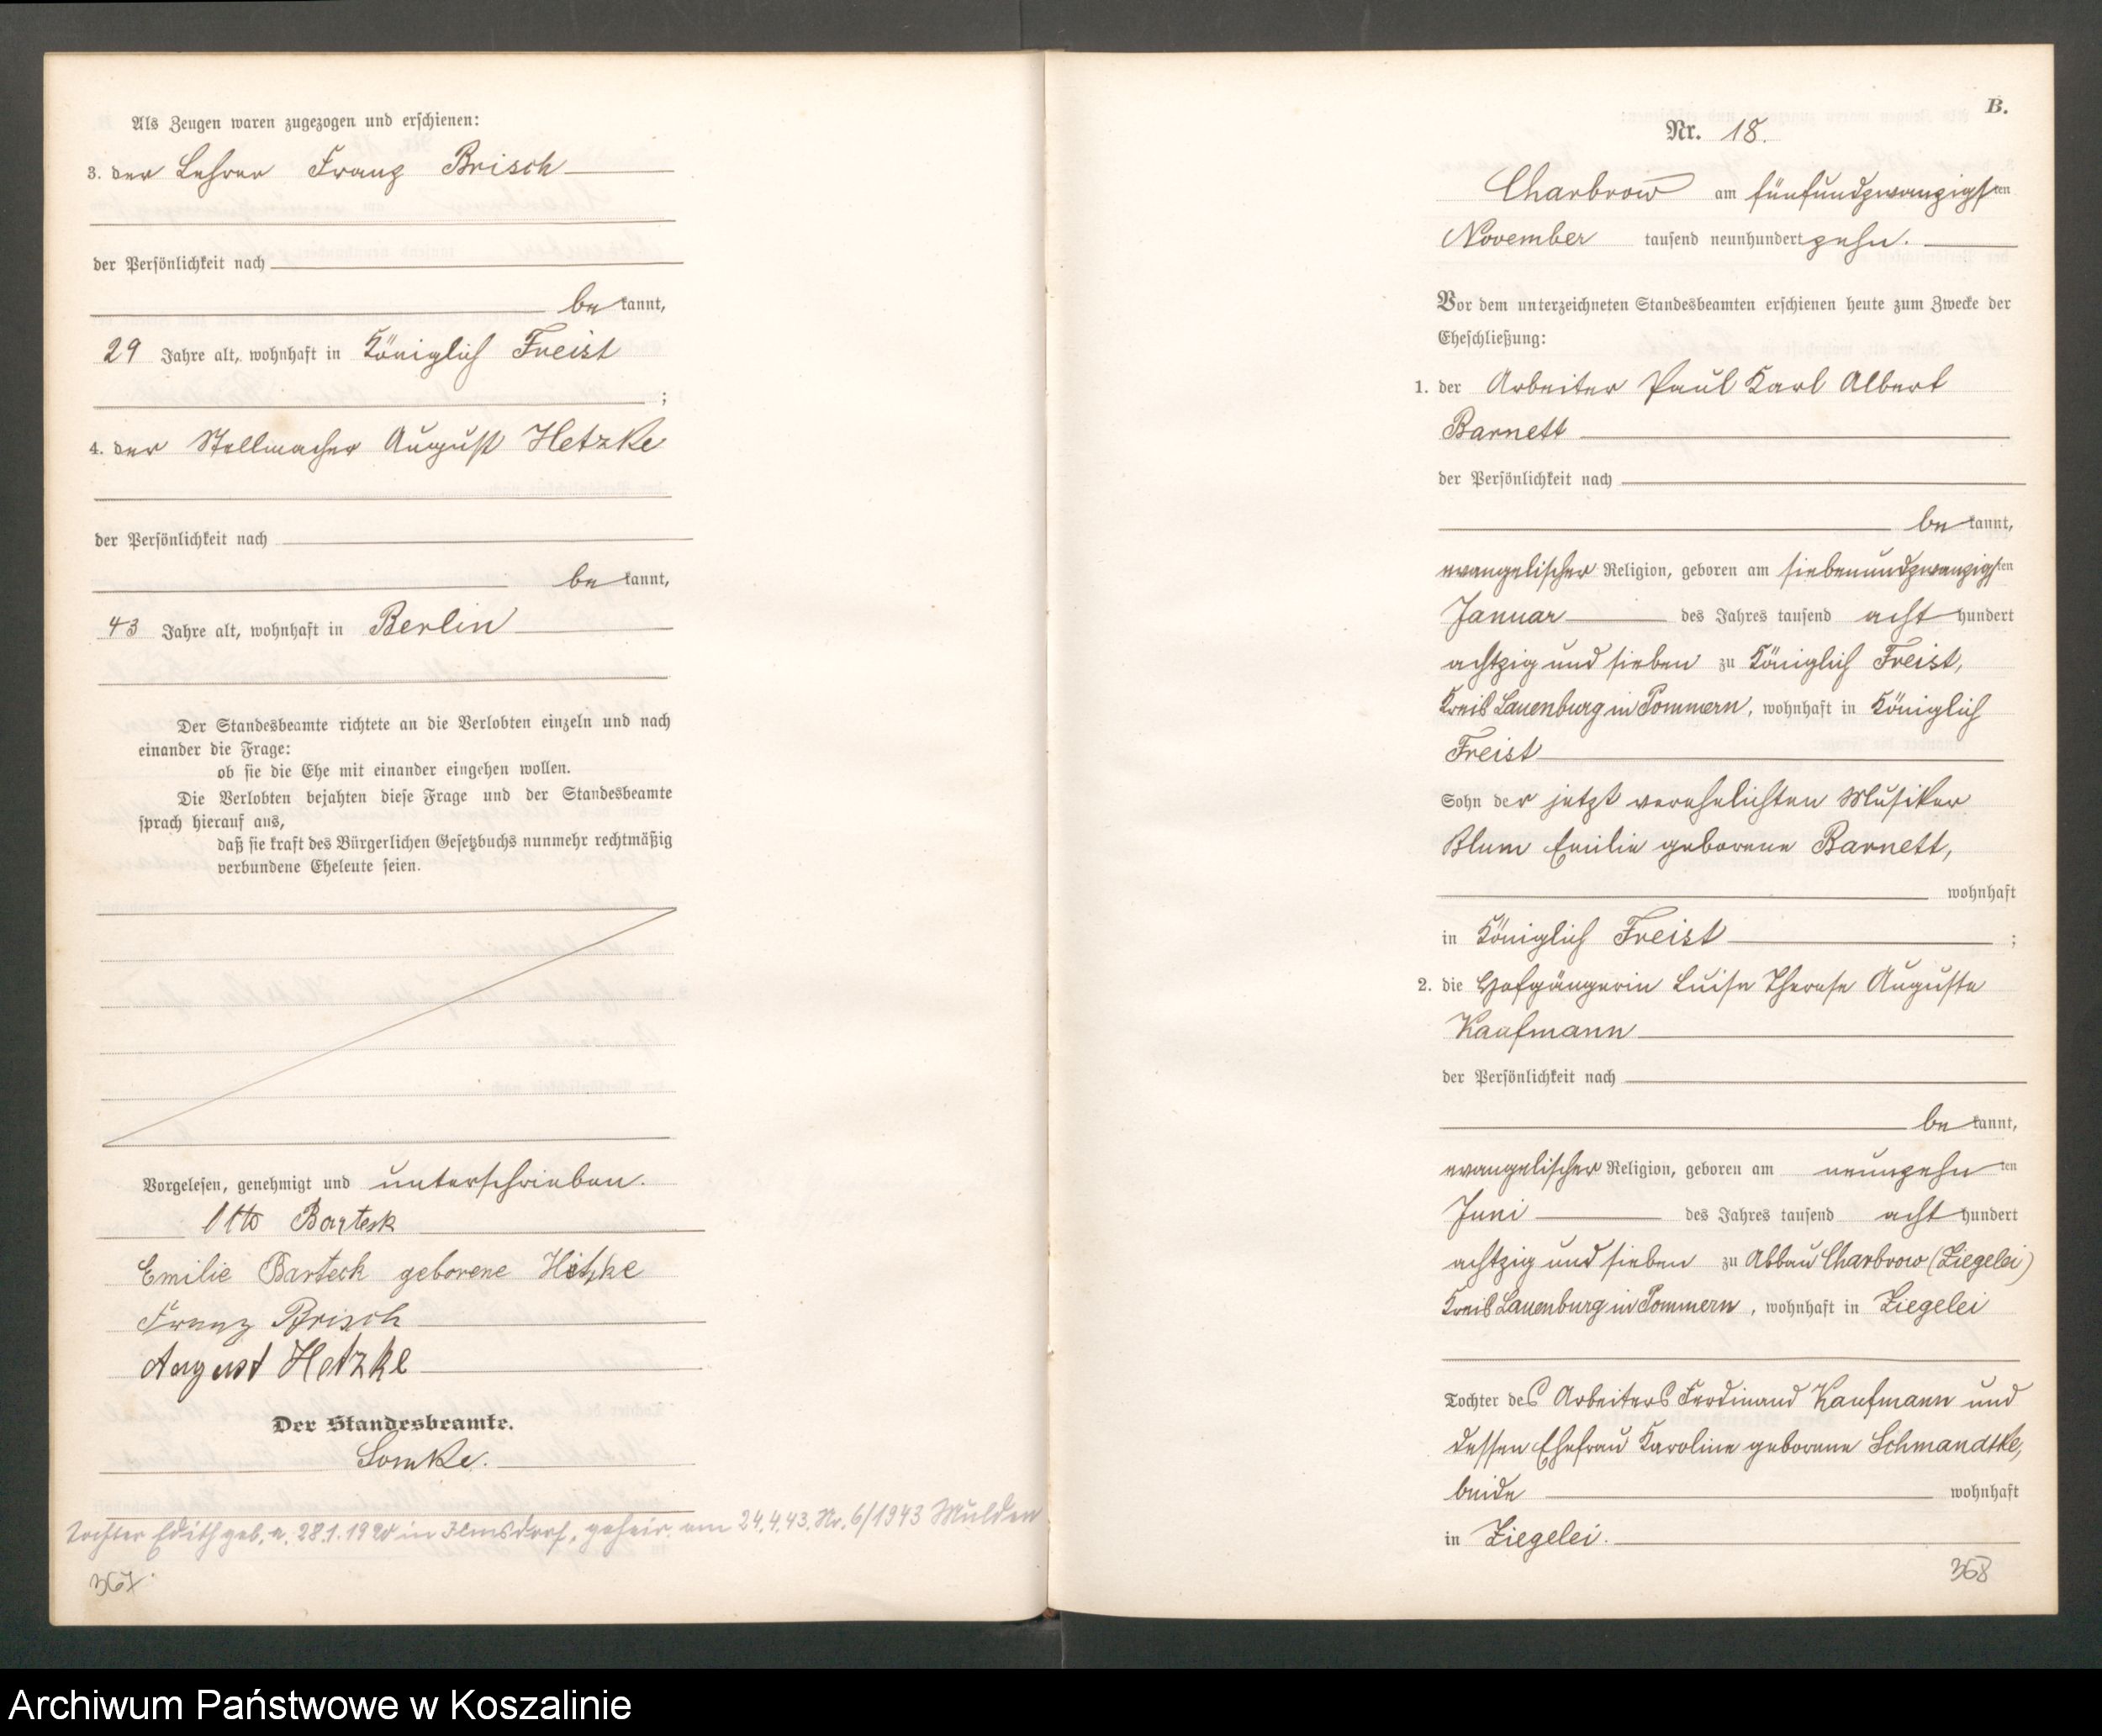 Als Zeugen waren zugezogen und erschienen:
3. der Lehrer Franz Brisch
der Persönlichkeit nach
be kannt,
29 Jahre alt, wohnhaft in Königlich Freist
;
4. der Stellmacher August Hetzke
der Persönlichkeit nach
be kannt,
43 Jahre alt, wohnhaft in Berlin
Der Standesbeamte richtete an die Verlobten einzeln und nach
einander die Frage:
ob sie die Ehe mit einander eingehen wollen.
Die Verlobten bejahten diese Frage und der Standesbeamte
sprach hierauf aus,
daß sie kraft des Bürgerlichen Gesetzbuchs nunmehr rechtmäßig
verbundene Eheleute seien.
Vorgelesen, genehmigt und unterschrieben.
Otto Barteck
Emilie Barteck geborene Hetzke
Franz Brisch
August Hetzke
Der Standesbeamte.
Lomke.
Tochter Edith geb. a. 28.1.1920 in , geheir. am 24.4.43. Nr. 6/1943 Mulden
367.
B.
Nr. 18.
Charbrow am fünfundzwanzigsten
November tausend neunhundert zehn.
Vor dem unterzeichneten Standesbeamten erschienen heute zum Zwecke der
Eheschließung:
1. der Arbeiter Paul Karl Albert
Barnett
der Persönlichkeit nach
be kannt,
evangelischer Religion, geboren am siebenundzwanzigsten
Januar des Jahres tausend acht hundert
achtzig und sieben zu Königlich Freist,
Kreis Lauenburg in Pommern, wohnhaft in Königlich
Freist
Sohn der jetzt verehelichten Musiker
Blum Emilie geborene Barnett,
wohnhaft
in Königlich Freist ;
2. die Hofgängerin Luise Therese Auguste
Kaufmann
der Persönlichkeit nach
be kannt,
evangelischer Religion, geboren am neunzehnten
Juni des Jahres tausend acht hundert
achtzig und sieben zu Abbau Charbrow (Ziegelei)
Kreis Lauenburg in Pommern, wohnhaft in Ziegelei
Tochter des Arbeiters Ferdinand Kaufmann und
dessen Ehefrau Karoline geborene Schmandtke,
beide wohnhaft
in Ziegelei.
368
Archiwum Państwowe w Koszalinie